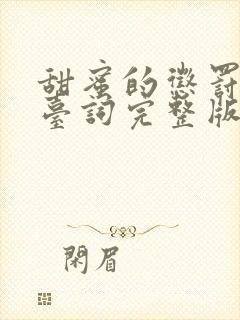 甜蜜的懲罰
臺詞完整版
閑眉